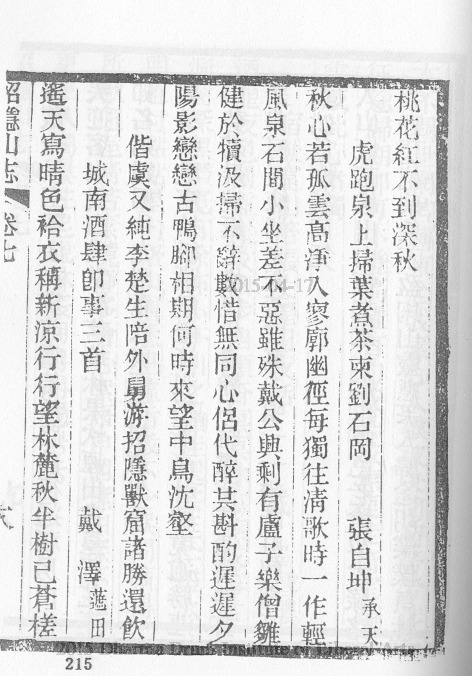 桃花紅不到深秋
虎跑泉上掃葉煮茶柬劉石岡 張自坤承天
秋心若孤雲高淨入寥廓幽徑每獨往清歌時一作輕
風泉石間小坐差不惡雖殊戴公興剩有盧子樂僧雛
健於犢汲掃不辭數惜無同心侶代醉共斟酌遲遲夕
陽影戀戀古鴨腳相期何時來望中鳥沈壑
偕虞又純李楚生陪外舅游招隱獸窟諸勝還飲
城南酒肆卽事三首 戴澤薀田
遙天寫晴色袷衣稱新涼行行望林麓秋半樹已蒼槎
招隱山志 卷七
2015-04-17
215